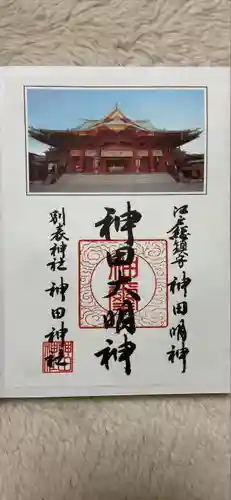 江戸總鎮守 神田明神
神田大明神
別表神社 神田神社